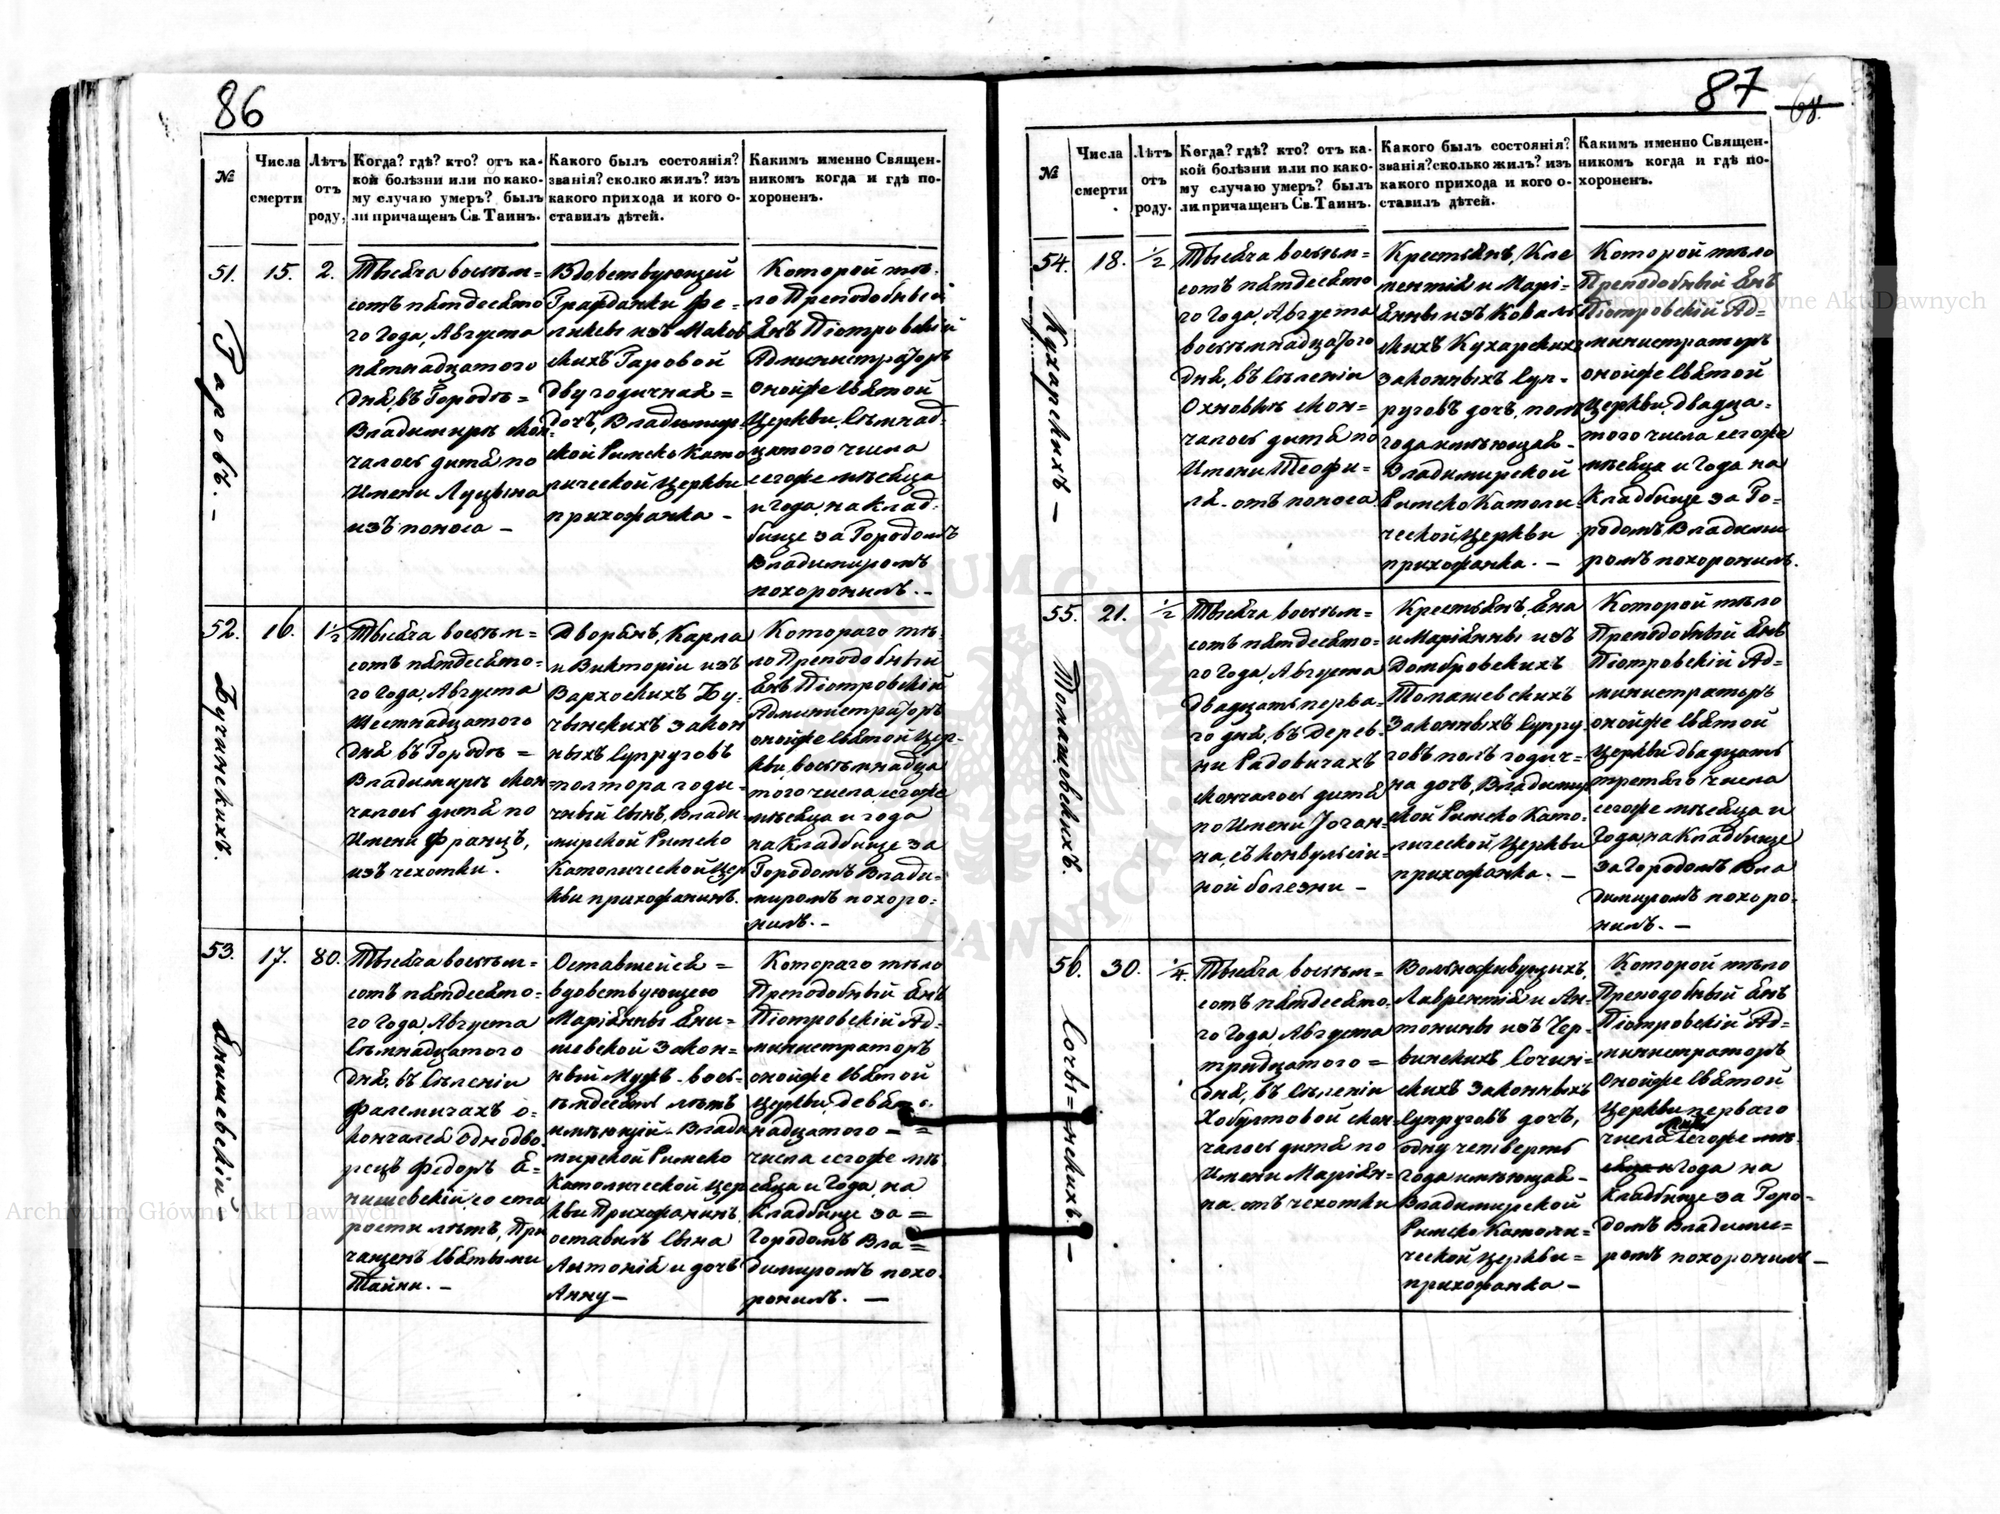 86
№
Числа
смерти
Лѣтъ
отъ
роду.
Когда? гдѣ? кто? отъ ка-
кой болѣзни или по како-
му случаю умеръ? былъ
ли причащенъ Св. Таинъ.
Какого былъ состоянія?
званія? сколко жилъ? изъ
какого прихода и кого о-
ставилъ дѣтей.
Какимъ именно Священ-
никомъ когда и гдѣ по-
хороненъ.
51.
Гаровъ. –
15.
2.
Тысяча восьъм=
сотъ пятдесято
го Года, Августа
пятнадцатого
дня, въ Городѣ=
Владимирѣ скон-
чалось дитя по
Имени Луцына
изъ поноса –
Вдовствующей
Гражданки Фе-
ликсы изъ Маков
скихъ Гаровой
двугодичная=
дочь, Владимир
ской Римско Като
лической Церкви
прихожанка –
Которой тѣ-
ло Преподобный
Янъ Піотровскій
Администраторъ
онойже Святой
Церкви, Сѣмнад-
цатого числа
сегоже мѣсяца
и года, на клад-
бище за Городомъ
Владимиромъ
похоронилъ. –
52.
Бучинскихъ.
16.
1½
Тысяча восьъм=
сотъ пятдесято-
го Года, Августа
Шестнадцатого
дня, въ Городѣ=
Владимирѣ скон-
чалось дитя по
Имени Францъ,
изъ чехотки.
Дворянъ, Карла
и Викторіи изъ
Вархоскихъ Бу-
чынскихъ Закон
ныхъ Супруговъ
полтора годи-
чный Сынъ, Влади-
мирской Римско
Католической Цер
кви прихожанинъ.
Котораго тѣ-
ло Преподобный
Янъ Піотровскій
Администраторъ
онойже Святой Цер-
кви, восьъмнадца
того числа, сегоже
мѣсяца и года
на Кладбище за
Городомъ Влади-
миромъ похоро-
нилъ. –
53.
Янишевскій –
17.
80.
Тысяча восьъм=
сотъ пятдесято-
го Года, Августа
Сѣмнадцатого
дня, въ Сѣленіи
Фалемичахъ о-
кончался Однодво-
рецъ Федоръ Я-
нишевскій, со ста
рости лѣтъ, При
чащенъ Святыми
Тайни. –
Оставшейся=
вдовствующего
Маріянны Яни-
шевской Закон=
ный Мужъ. вось-
ъмдесятъ лѣтъ
имѣющій – Влади
мирской Римско
Католической Цер
кви Прихожанинъ,
оставилъ Сына
Антонія и дочь
Анну –
Котораго тѣло
Преподобный Янъ
Піотровскій Ад-
министраторъ
онойже Святой
Церкви, девят-
надцатого=
числа сегоже мѣ
сяца и Года, на
Кладбище за=
Городомъ Вла=
димиромъ похо-
ронилъ. –
87
68.
№
Числа
смерти
Лѣтъ
отъ
роду.
Когда? гдѣ? кто? отъ ка-
кой болѣзни или по како-
му случаю умеръ? былъ
ли причащенъ Св. Таинъ.
Какого былъ состоянія?
званія? сколько жилъ? изъ
какого прихода и кого о-
ставилъ дѣтей.
Какимъ именно Священ-
никомъ когда и гдѣ по-
хороненъ.
54.
Кухарскихъ –
18.
½
Тысяча восьъм=
сотъ пятдесято
го Года, Августа
восьъмнадцатого
дня, въ Сѣленіи
Охновкѣ скон=
чалось дитя по
Имени Теофи-
ля. отъ поноса
Крестьянъ, Кле
ментія и Марі-
янны изъ Коваль
скихъ Кухарскихъ
законныхъ Суп-
руговъ дочь, пол
года имѣющая-
Владимирской
Римско Католи-
ческой Церкви
прихожанка. –
Которой тѣло
Преподобный Янъ
Піотровскій Ад=
министраторъ
онойже Святой
Церкви, двадца-
того числа сегоже
мѣсяца и Года на
Кладбище за Го-
родомъ Владими
ромъ похоронилъ.
55.
Томашевскихъ.
21.
½
Тысяча восьъм=
сотъ пятдесято-
го Года, Августа
двадцать перва-
го дня, въ Дерев-
ни Радовичахъ
скончалось дитя
по Имени Іоган-
на, съ конвульсій-
ной болезни –
Крестьянъ, Яна
и Маріянны изъ
Домбровскихъ
Томашевскихъ
Законныхъ Супру
говъ полъ годич-
на дочь, Владимир
ской Римско Като-
лической, Церкви
прихожанка. –
Которой тѣло
Преподобный Янъ
Піотровскій Ад=
министраторъ
онойже Святой
Церкви двадцать
третяго числа
сегоже мѣсяца и
Года, на Кладбище
за Городомъ Вла
димиромъ похоро-
нилъ. –
56.
Сочы=нскихъ. –
30.
¼
Тысяча восьъм=
сотъ пятдесято-
го Года, Августа
тридцатого=
дня, въ Сѣленіи
Хобултовой скон-
чалось дитя по
Имени Маріян-
на, отъ чехотки
Вольноживущихъ,
Лаврентія и Ан-
тонины изъ Чер-
винскихъ Сочин=
скихъ Законныхъ
Супруговъ дочь,
одну четверть
года имѣющая-
Владимирской
Римско Католи-
ческой Церкви=
прихожанка –
Которой тѣло
Преподобный Янъ
Піотровскій Ад=
министраторъ
Онойже Святой
Церкви перваго
числа сегоже мѣ-
сяца и Года на
Кладбище за Горо-
домъ Владими=
ромъ похоронилъ –
Archiwum Główne Akt Dawnych
Archiwum Główne Akt Dawnych
ARCHIWUM GŁÓWNE AKT DAWNYCH